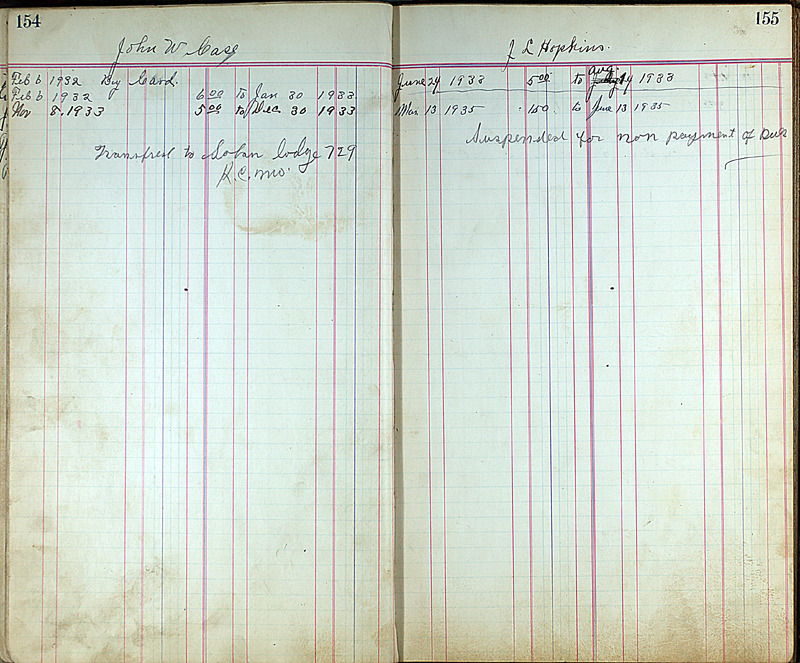 154
John W Case
Feb 6 1932 By Card.
Feb 6 1932 6 00 to Jan 30 1933
Nov 8. 1933 5 00 to Dec 30 1933
Transfred to lodge 729
K.C. Mo.
155
J L Hopkins.
Aug.
June 24 1933 5 00 to 24 1933
Mar 13 1935 . 150 to June 13 1935
Suspended for non payment of Dues